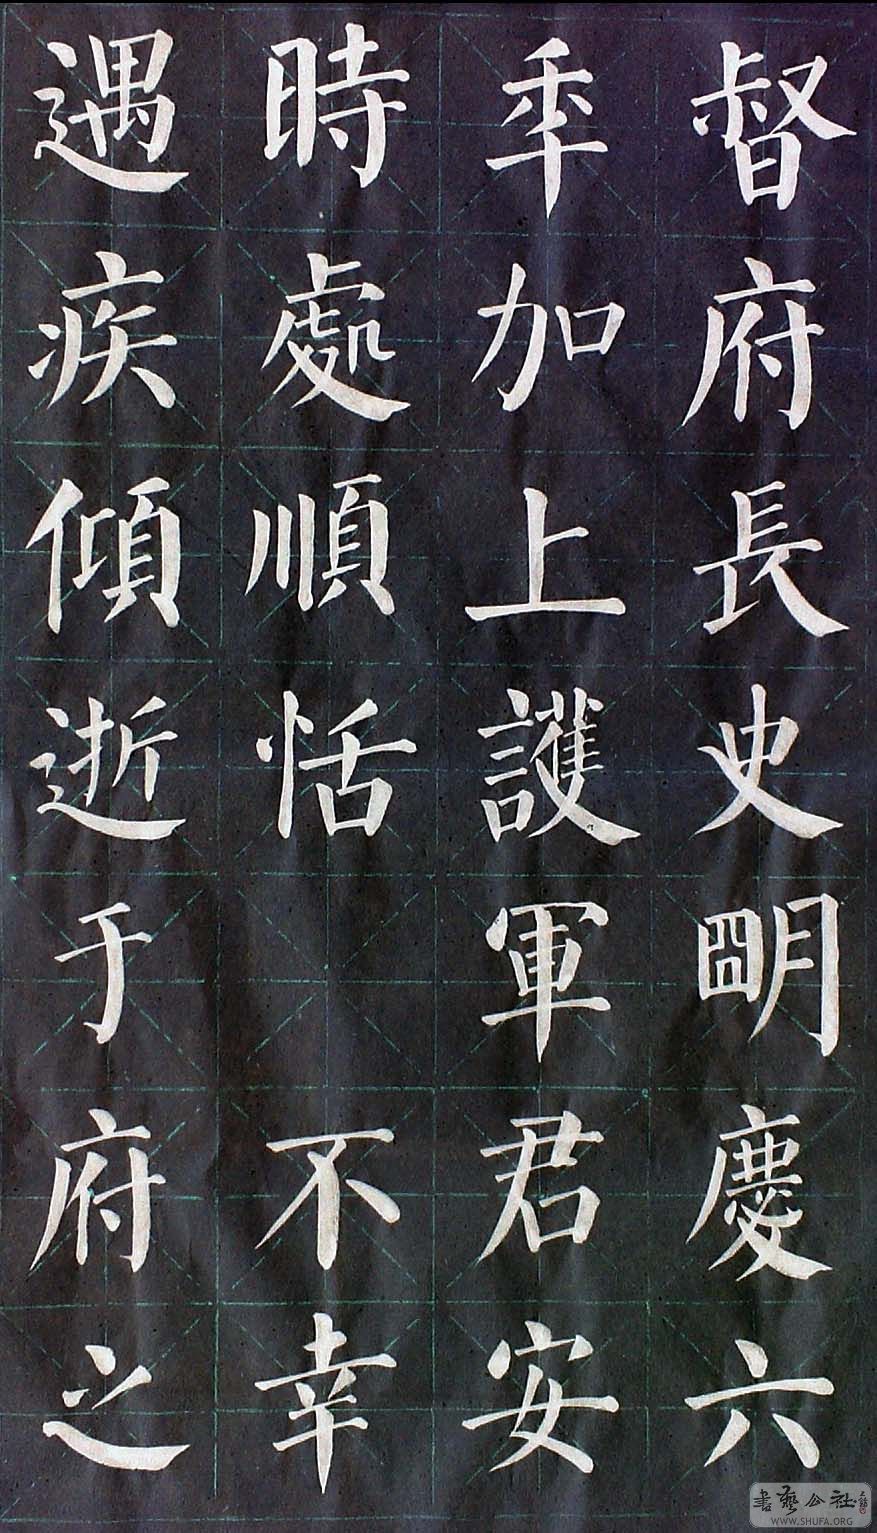 督府長史明慶六
年加上護軍君安
時處順恬 不幸
遇疾傾逝于府之
書藝公社
WWW.SHUFA.ORG